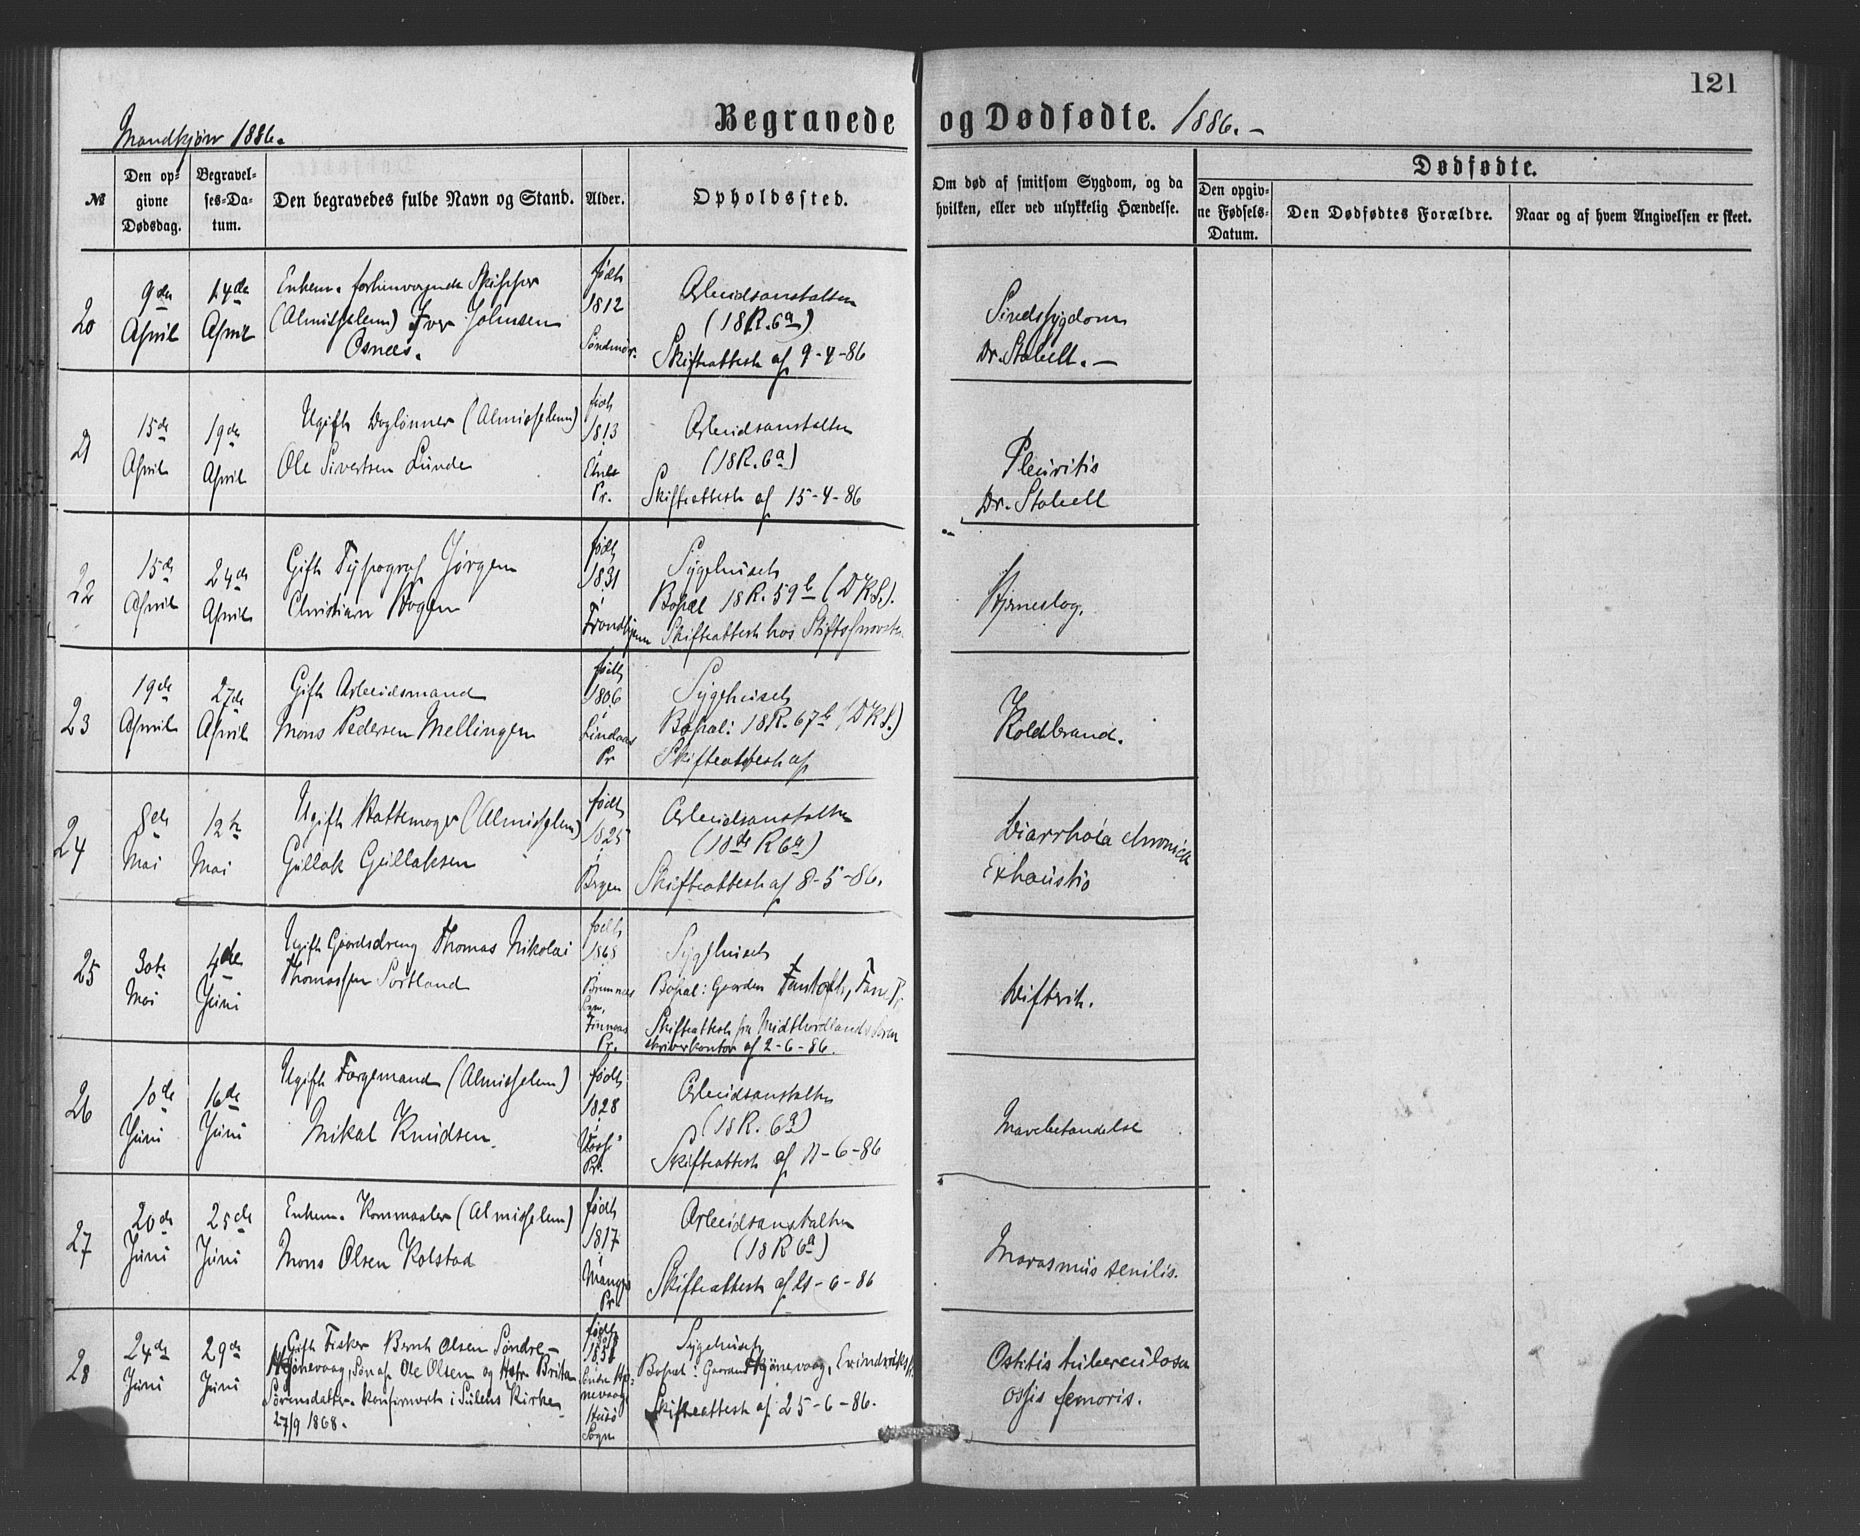 121
Begravede og Dødfødte. 1886.-
Mandkjøn 1886.
№
Den op-
givne
Dødsdag.
Begravel-
ses-Da-
tum.
Den begravedes fulde Navn og Stand.
Alder.
Opholdssted.
Om død af smitsom Sygdom, og da
hvilken, eller ved ulykkelig Hændelse.
Dødfødte.
Den opgiv-
ne Fødsels-
Datum.
Den Dødfødtes Forældre.
Naar og af hvem Angivelsen er skeet.
20
9de
April
14de
April
Enkem. forhenværende Skipper
(Almisselem) Iver Johnsen
Osnæs.
født
1812
Søndmør.
Arbeidsanstalten
(18 R. 6a)
Skifteattest af 9-4-86
Sindssygdom
Dr. Stabell. -
21
15de
April
19de
April
Ugift Daglønner (Almisselem)
Ole Sivertsen Lunde
født
1813
i
Pr.
Arbeidsanstalten
(18 R. 6a)
Skifteattest af 15-4-86
Pleuritis
Dr. Stabell
22
15de
April
24de
April
Gift Typograf Jørgen
Christian Bogen
født
1831
i
Trondhjem
Sygehuset
Bopæl 18 R. 59b (DKS.).
Skifteattest hos Stiftsprovsten
Hjerneslag.
23
19de
April
27de
April
Gift Arbeidsmand
Mons Pedersen Mellingen
født
1806
i
Lindaas
Pr
Sygehuset
Bopæl: 18 R. 67b (DKS.)
Skifteattest af
Koldbrand.
24
8de
Mai
12te
Mai
Ugift Hattemager (Almisselem)
Gullak Gullaksen
født
1825
i
Bergen
Arbeidsanstalten
(18de R 6a)
Skifteattest af 8-5-86.
Diarrhoia chronica
Exhaustio
25
30te
Mai
4de
Juni
Ugift Gaardsdreng Thomas Nikolai
Thomassen Sortland
født
1865
Bremnæs
Sogn,
Finnaas
Pr.
Sygehuset
Bopæl: Gaarden Fantoft, Fane Pr.
Skifteattest fra Midthordlands Soren
skriverkontor af 2-6-86.
Difteri.
26
10de
Juni
16de
Juni
Ugift Fargemand (Almisselem)
Mikal Knudsen.
født
1828
i
Voss
Pr.
Arbeidsanstalten
(18 R. 6a)
Skifteattest af 11-6-86
Mavebetændelse
27
20de
Juni
25de
Juni
Enkem. Kornmaaler (Almisselem)
Mons Olsen Kolstad
født
1817
i
Manger
Pr.
Arbeidsanstalten
(18 R 6a)
Skifteattest af 21-6-86
Marasmus senilis.
28
24de
Juni
29de
Juni
Gift Fisker Bernt Olsen Søndre-
Hjønevaag, Søn af Ole Olsen og Hstr. Britha
Sørensdatter. Konfirmert i Sulens Kirke
27/9 1868.
født
nevaag
Husø
Sogn
Sygehuset
Bopæl: Gaarden Hjønevaag, Evindvik Pr.
Skifteattest af 25-6-86.
Ostitis tuberculosa
ossis femoris.